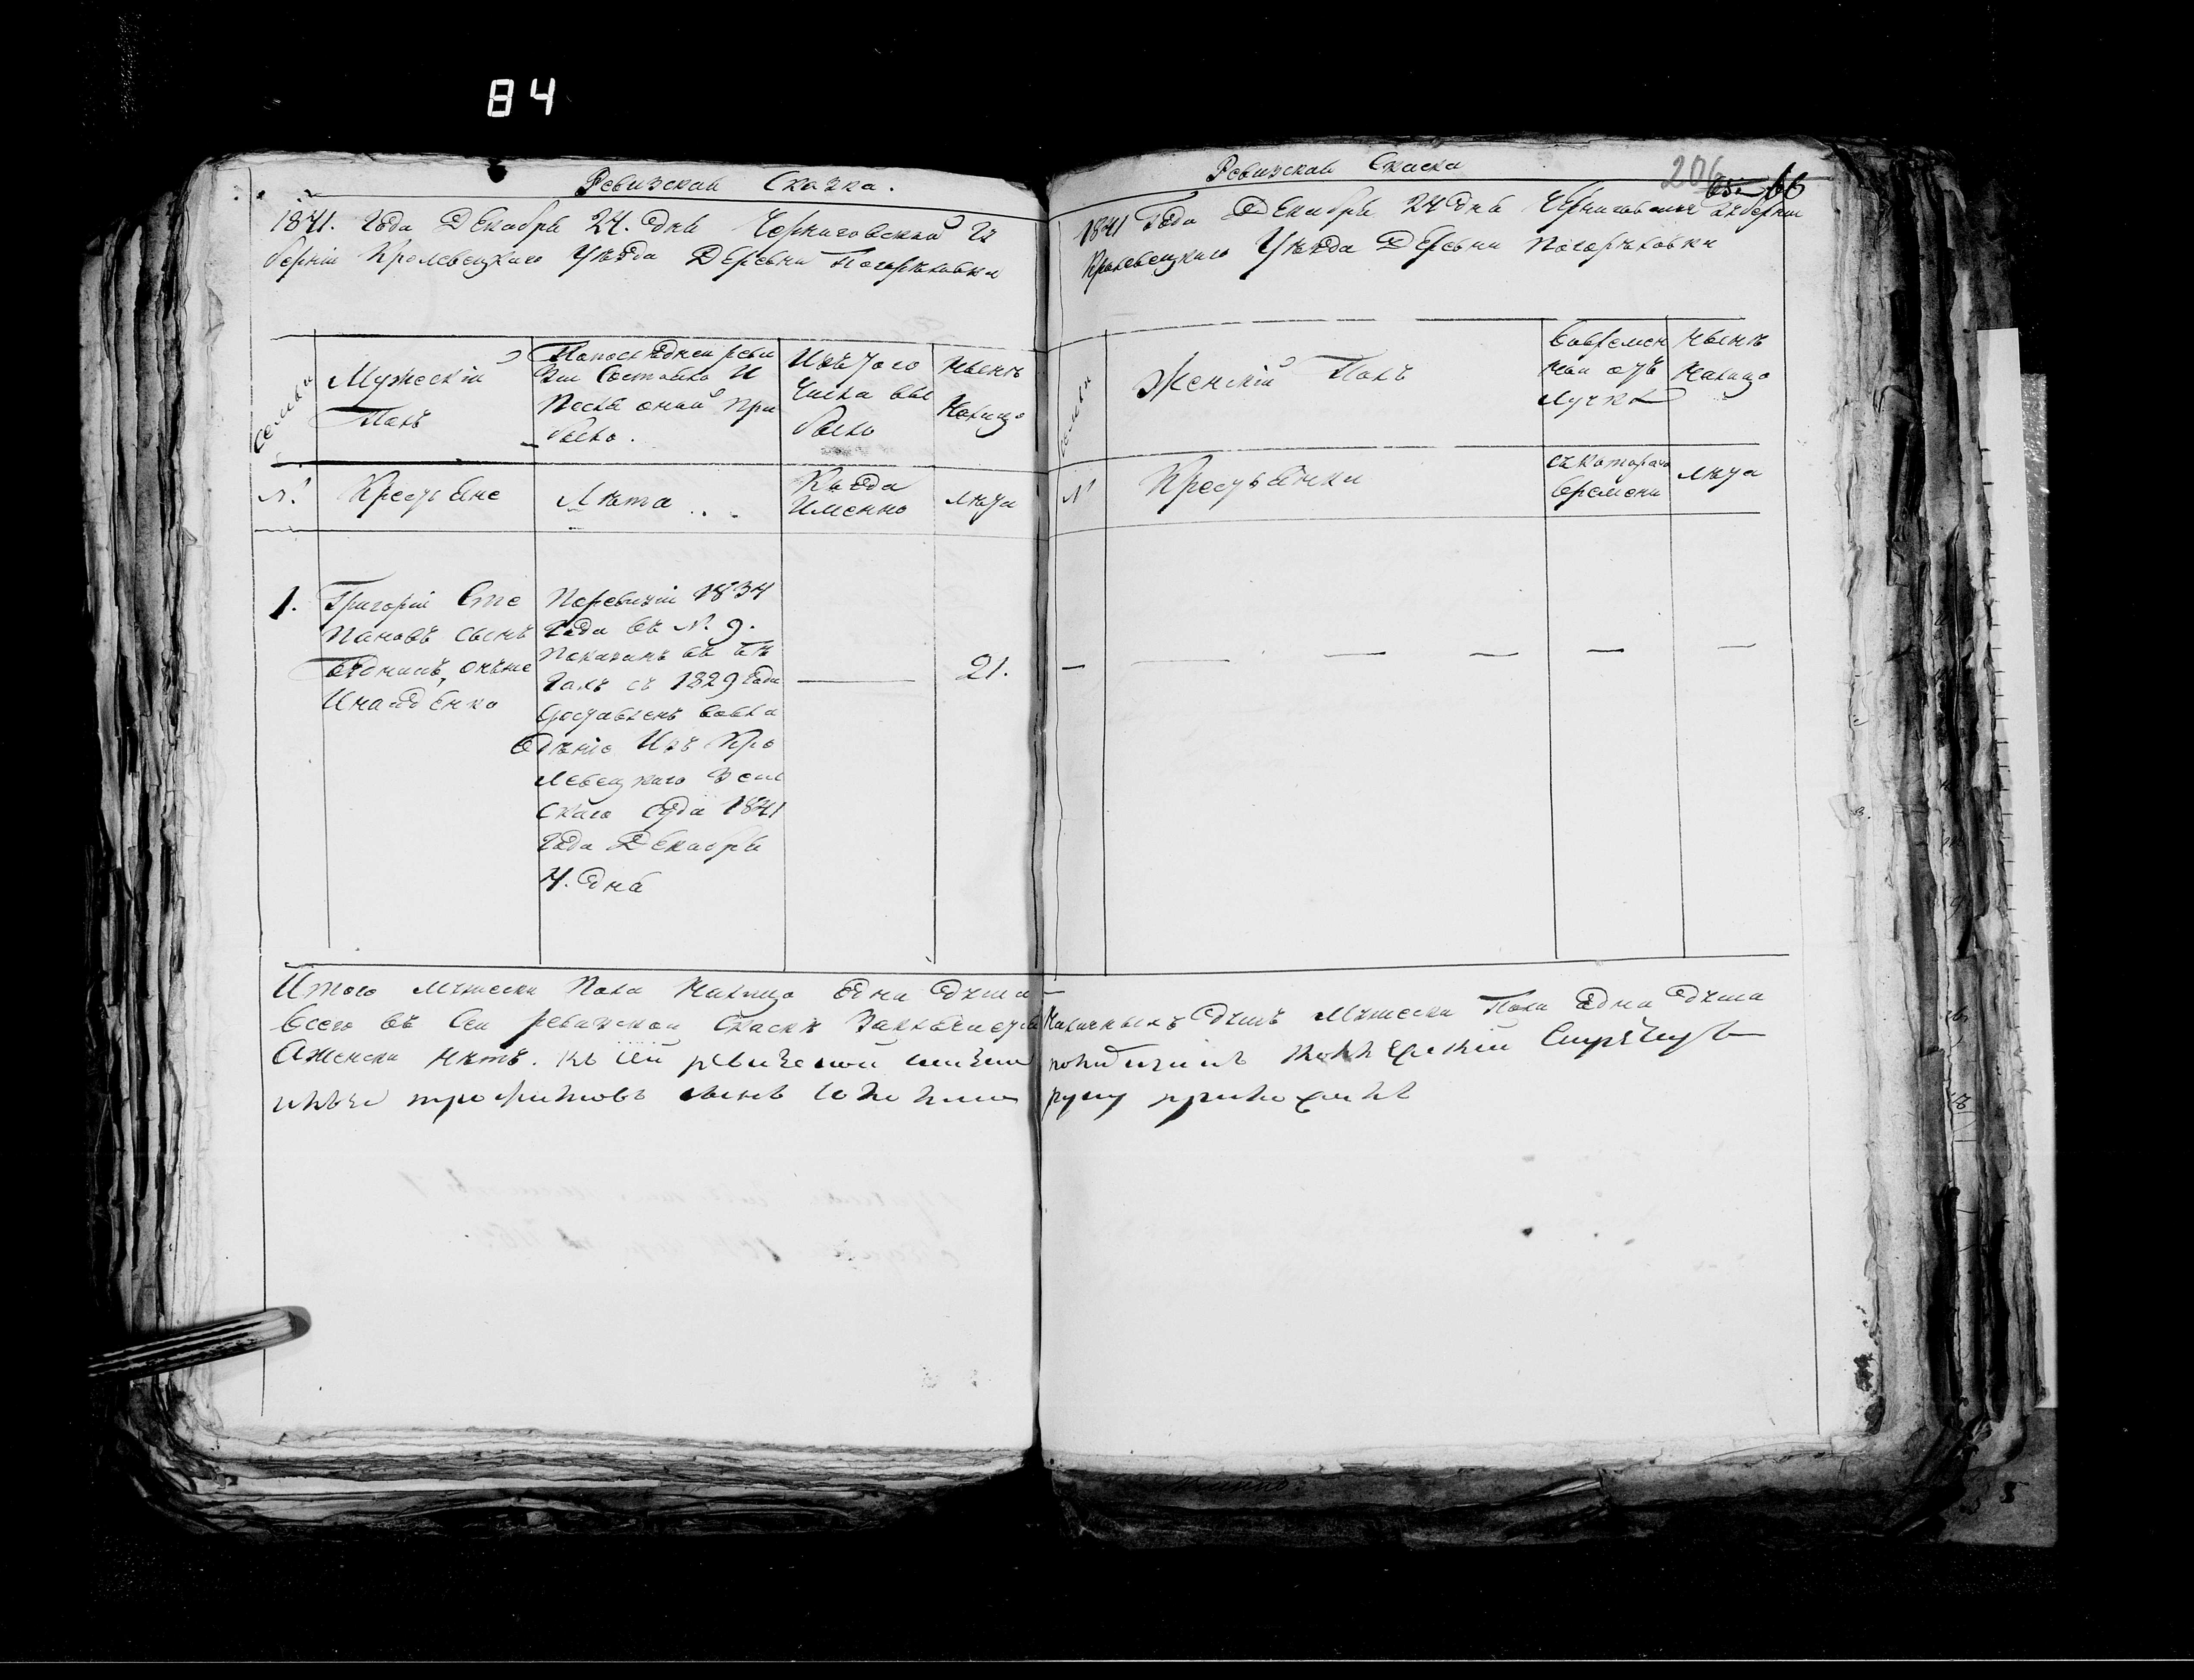 84
Ревизская Сказка.
1841. Года Декабря 24. дня Черниговской Гу
берніи Кролевецкаго Уѣзда Деревни Погорѣловки
Семьи
Мужескій
Полъ
Попоследней реви
зіи Состояло И
Послѣ оной при
было.
Изътого
Числа вы
было
Нынѣ
Налицо
№
Крестьяне
Лѣта
Когда
Именно
лѣта
1.
Григорій Сте
пановъ сынъ
онъже
Поревизіи 1834
Года въ №. 9.
Показанъ въ бѣ
гахъ съ 1829 Года
Доставленъ вовла
дѣніе Изъ Кро
левецкаго Зем
скаго суда 1841
Года Декабря
4. дня
21.
Итого мужеска Пола Налицо Една душа
Всего въ Сей ревизской Скаскѣ Заключается
Аженска нѣтъ. Къ сей ревизской
трофимовъ сынъ
Ревизская Скаска
206
65 66
1841 Года Декабря 24 дня Черниговской Губерніи
Кролевецкаго Уѣзда Деревни Погорѣловки
Семьи
Женскій Полъ
Вовремен
ной отъ
лучкѣ
Нынѣ
Налицо
№
Крестьянки
съкотораго
времени
лѣта
Наличныхъ душъ Мужеска Пола Една душа
руку приложилъ